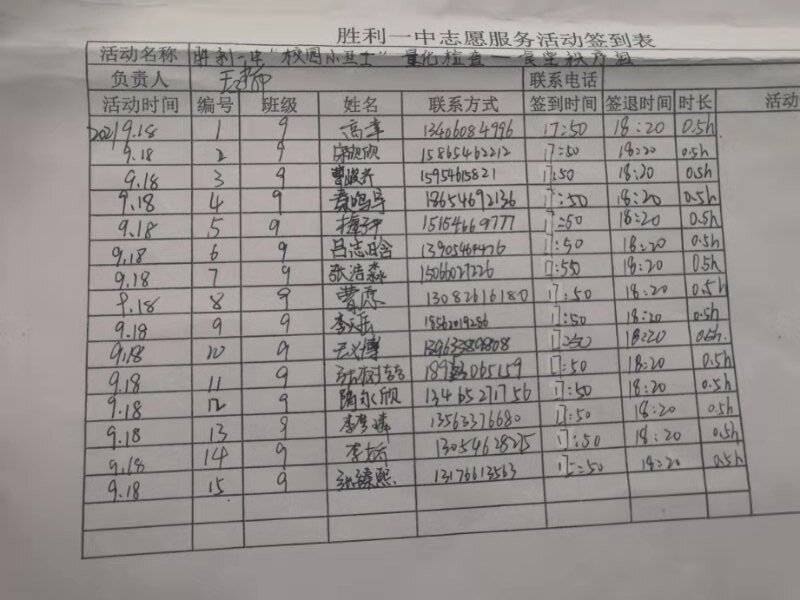 胜利一中志愿服务活动签到表
活动名称 胜利一中“校园小卫士”量化检查一食堂秩序
负责人 联系电话
活动时间 编号 班级 姓名 联系方式 签到时间 签退时间 时长 活动
2021 9.18 1 9 高 13406084996 17:50 18:20 0.5h
9.18 2 9 欣欣 15865462212 17:50 18:20 0.5h
9.18 3 9 曹 15954615821 17:50 18:20 0.5h
9.18 4 9 秦鸣宇 18654692136 17:50 18:20 0.5h
9.18 5 9 15154669777 17:50 18:20 0.5h
9.18 6 9 吕志晗 17:50 18:20 0.5h
9.18 7 9 张浩淼 15066027226 17:50 18:20 0.5h
9.18 8 9 曹原 13082616180 17:50 18:20 0.5h
9.18 9 9 李 18562019286 17:50 18:20 0.5h
9.18 10 9 18:20 0.5h
9.18 11 9 张树 17:50 18:20 0.5h
9.18 12 9 隋永欣 13465271756 17:50 18:20 0.5h
9.18 13 9 李 13562376680 17:50 18:20 0.5h
9.18 14 9 李 17:50 18:20 0.5h
9.18 15 9 张臻熙 13176613563 17:50 18:20 0.5h